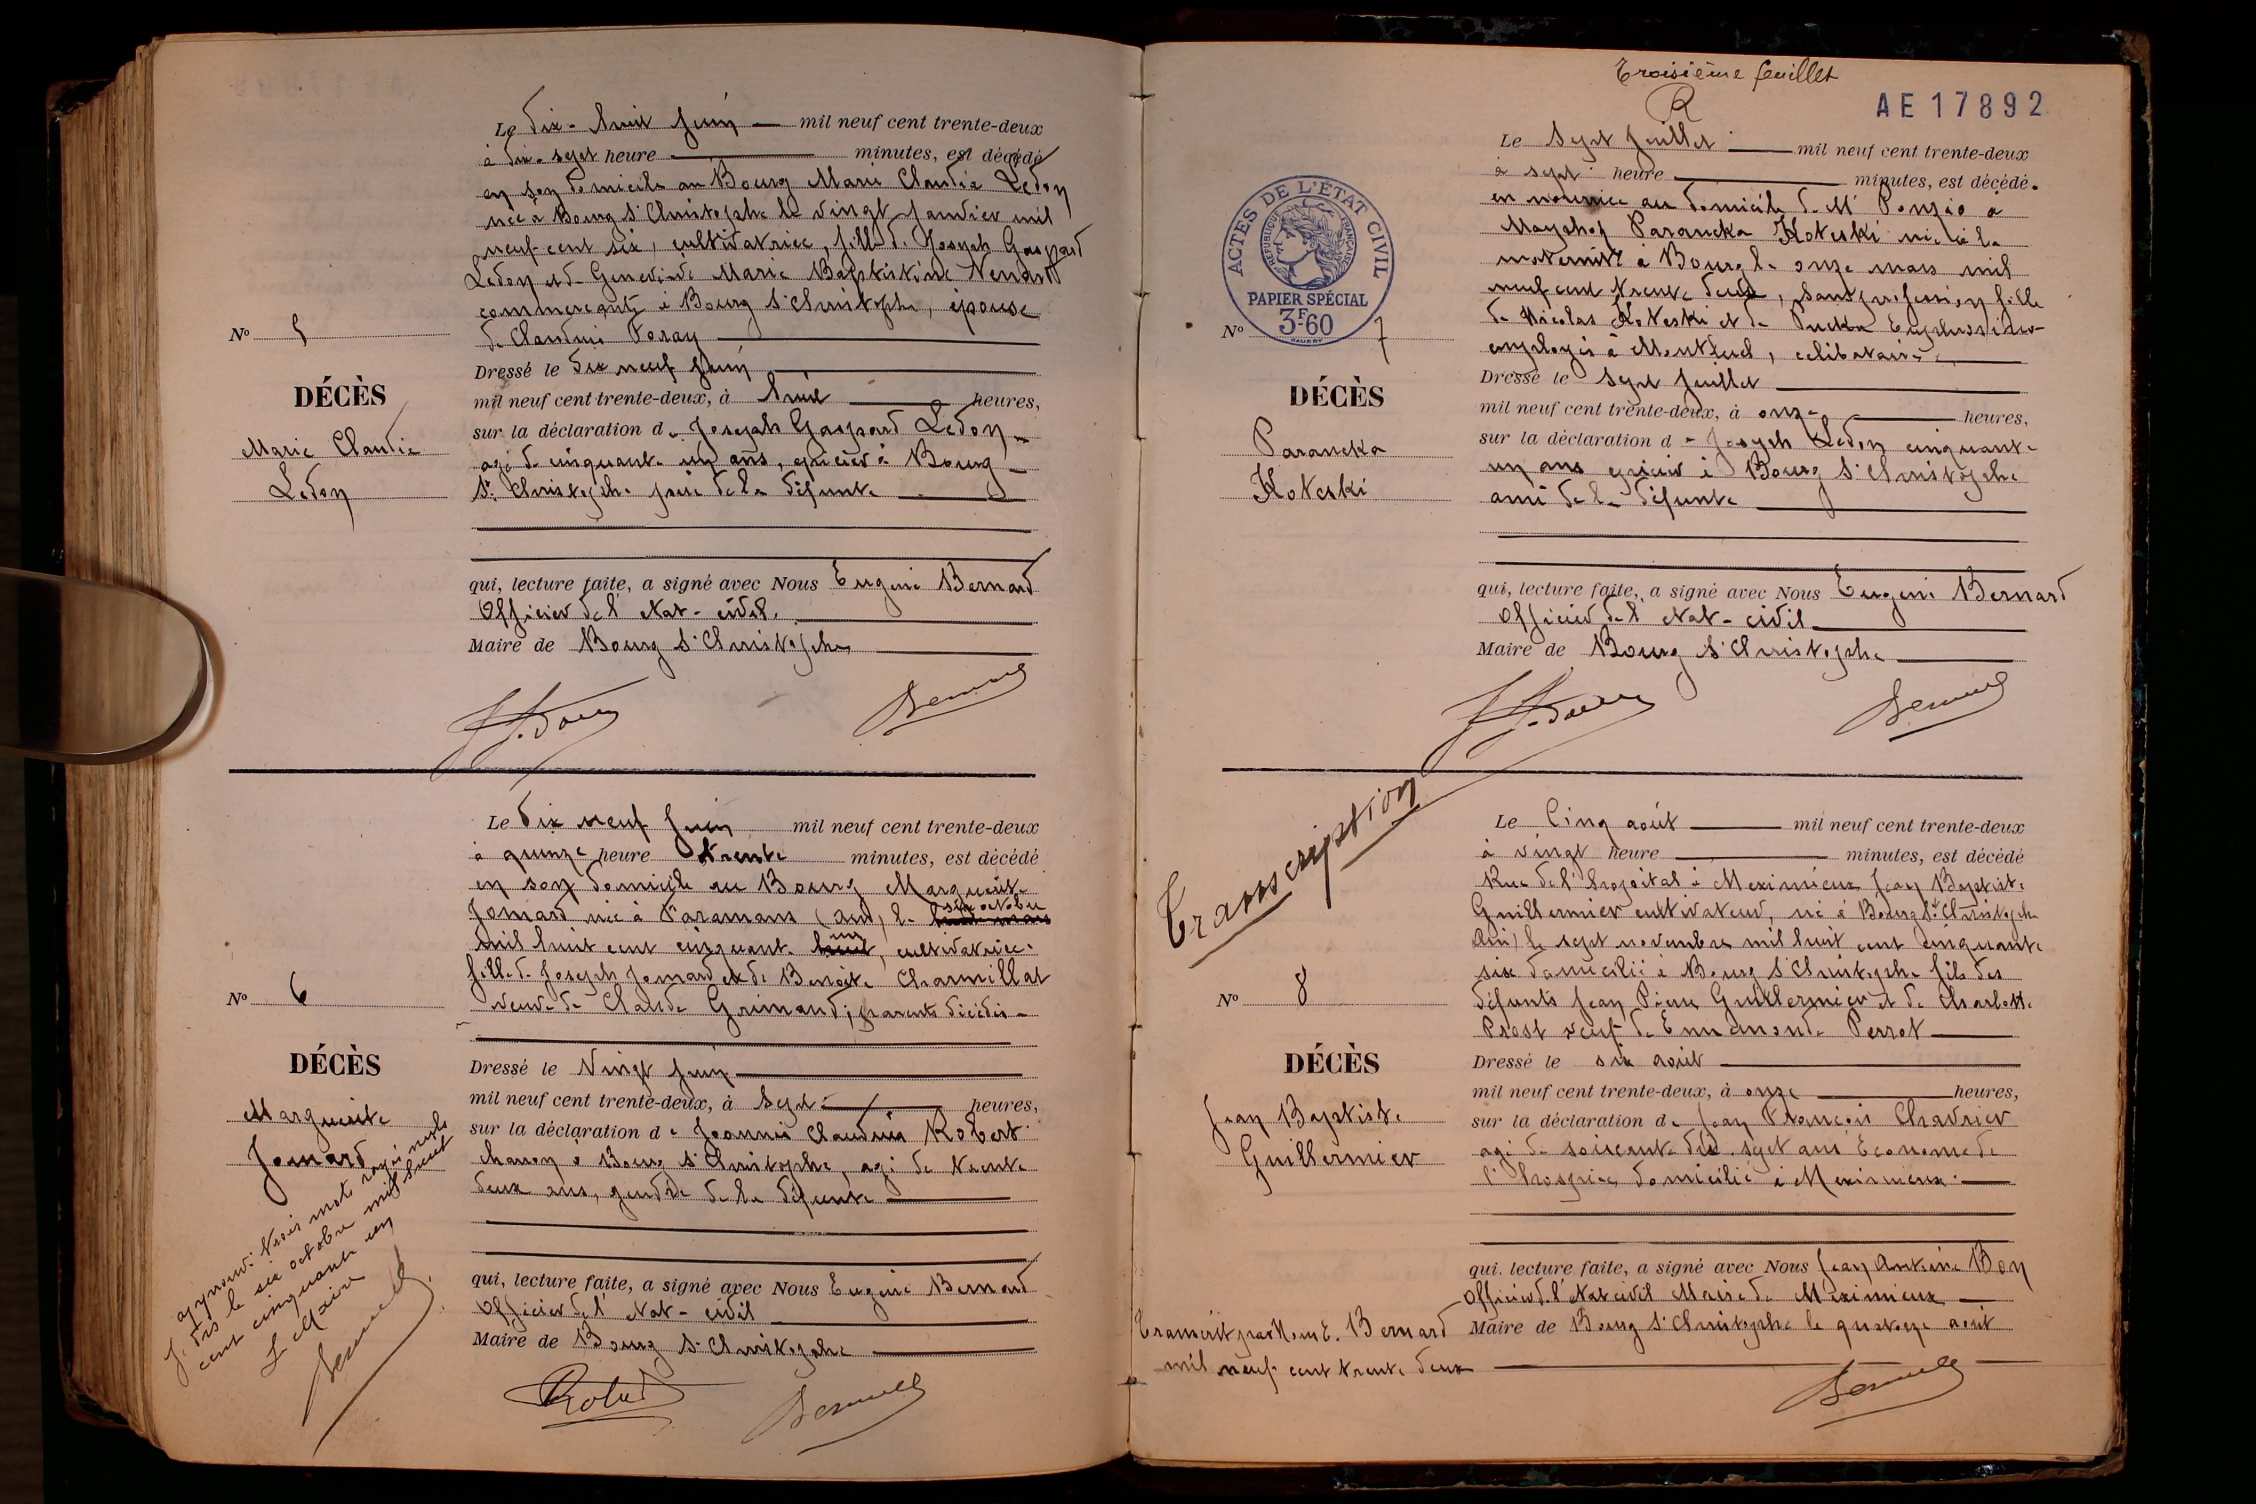 Le dix-huit juin mil neuf cent trente-deux
à dix-sept heure minutes, est décédé
en son domicile au Bourg Marie Claudia Ledon
née à Bourg St Christophe le vingt janvier mil
neuf cent six, cultivatrice, fille de Joseph Gaspard
Ledon et de Geneviève Marie Baptistine
commerçants à Bourg St Christophe, épouse
de Claudius
Dressé le dix neuf juin
mil neuf cent trente-deux, à huit heures,
sur la déclaration de Joseph Gaspard Ledon
agé de cinquante un ans, épicier à Bourg
St Christophe père de la défunte
qui, lecture faite, a signé avec Nous Eugène Bernard
Officier de l'état-civil.
Maire de Bourg St Christophe
No 5
DÉCÈS
Marie Claudia
Ledon
Le dix neuf juin mil neuf cent trente-deux
à quinze heure trente minutes, est décédé
en son domicile au Bourg Marguerite
Jomard née à Faramans (Ain) le six octobre
mil huit cent cinquante un, cultivatrice
fille de Joseph Jomard et de Benoîte Charmillat
veuve de Claude Grimaud; parents décédés
Dressé le Vingt juin
mil neuf cent trente-deux, à sept heures,
sur la déclaration de Joannès Claudius Robert
charron à Bourg St Christophe, agé de trente
deux ans, gendre de la défunte
qui, lecture faite, a signé avec Nous Eugène Bernard
Officier de l'état-civil
Maire de Bourg St Christophe
Robert
Bernard
No 6
DÉCÈS
Marguerite
Jomard
J'approuve trois mots rayés nuls
dis le six octobre mil huit
cent cinquante un
Le Maire
Bernard
Troisième feuillet
R
AE 17892
ACTES DE L'ÉTAT CIVIL
RÉPUBLIQUE FRANÇAISE
PAPIER SPÉCIAL
3F60
Le Sept juillet mil neuf cent trente-deux
à sept heure minutes, est décédé.
en nourrice au domicile de Mr Ponzio à
Parancka Koteski née à la
maternité à Bourg le onze mars mil
neuf cent trente deux, sans profession fille
de Nicolas Koteski et de Euphrosine
employés à Montluel, célibataire
Dressé le sept juillet
mil neuf cent trente-deux, à onze heures,
sur la déclaration de Joseph Ledon cinquante
un ans épicier à Bourg St Christophe
ami de la défunte
qui, lecture faite, a signé avec Nous Eugène Bernard
Officier de l'état-civil
Maire de Bourg St Christophe
Bernard
No 7
DÉCÈS
Parancka
Koteski
Transcription
Le Cinq août mil neuf cent trente-deux
à vingt heure minutes, est décédé
Rue de l'hôpital à Meximieux Jean Baptiste
Guillermier cultivateur, né à Bourg St Christophe
(Ain) le sept novembre mil huit cent cinquante
six domicilié à Bourg St Christophe fils des
défunts Jean Pierre Guillermier et de Charlotte
Prost veuf de Ennemonde Perrot
Dressé le six août
mil neuf cent trente-deux, à onze heures,
sur la déclaration de Jean François Chavrier
agé de soixante dix-sept ans Econome de
l'hospice, domicilié à Meximieux
qui, lecture faite, a signé avec Nous Jean Antoine Bon
Officier de l'état civil Maire de Meximieux
Transcrit par Nous E. Bernard Maire de Bourg St Christophe le quatorze août
mil neuf cent trente deux
Bernard
No 8
DÉCÈS
Jean Baptiste
Guillermier